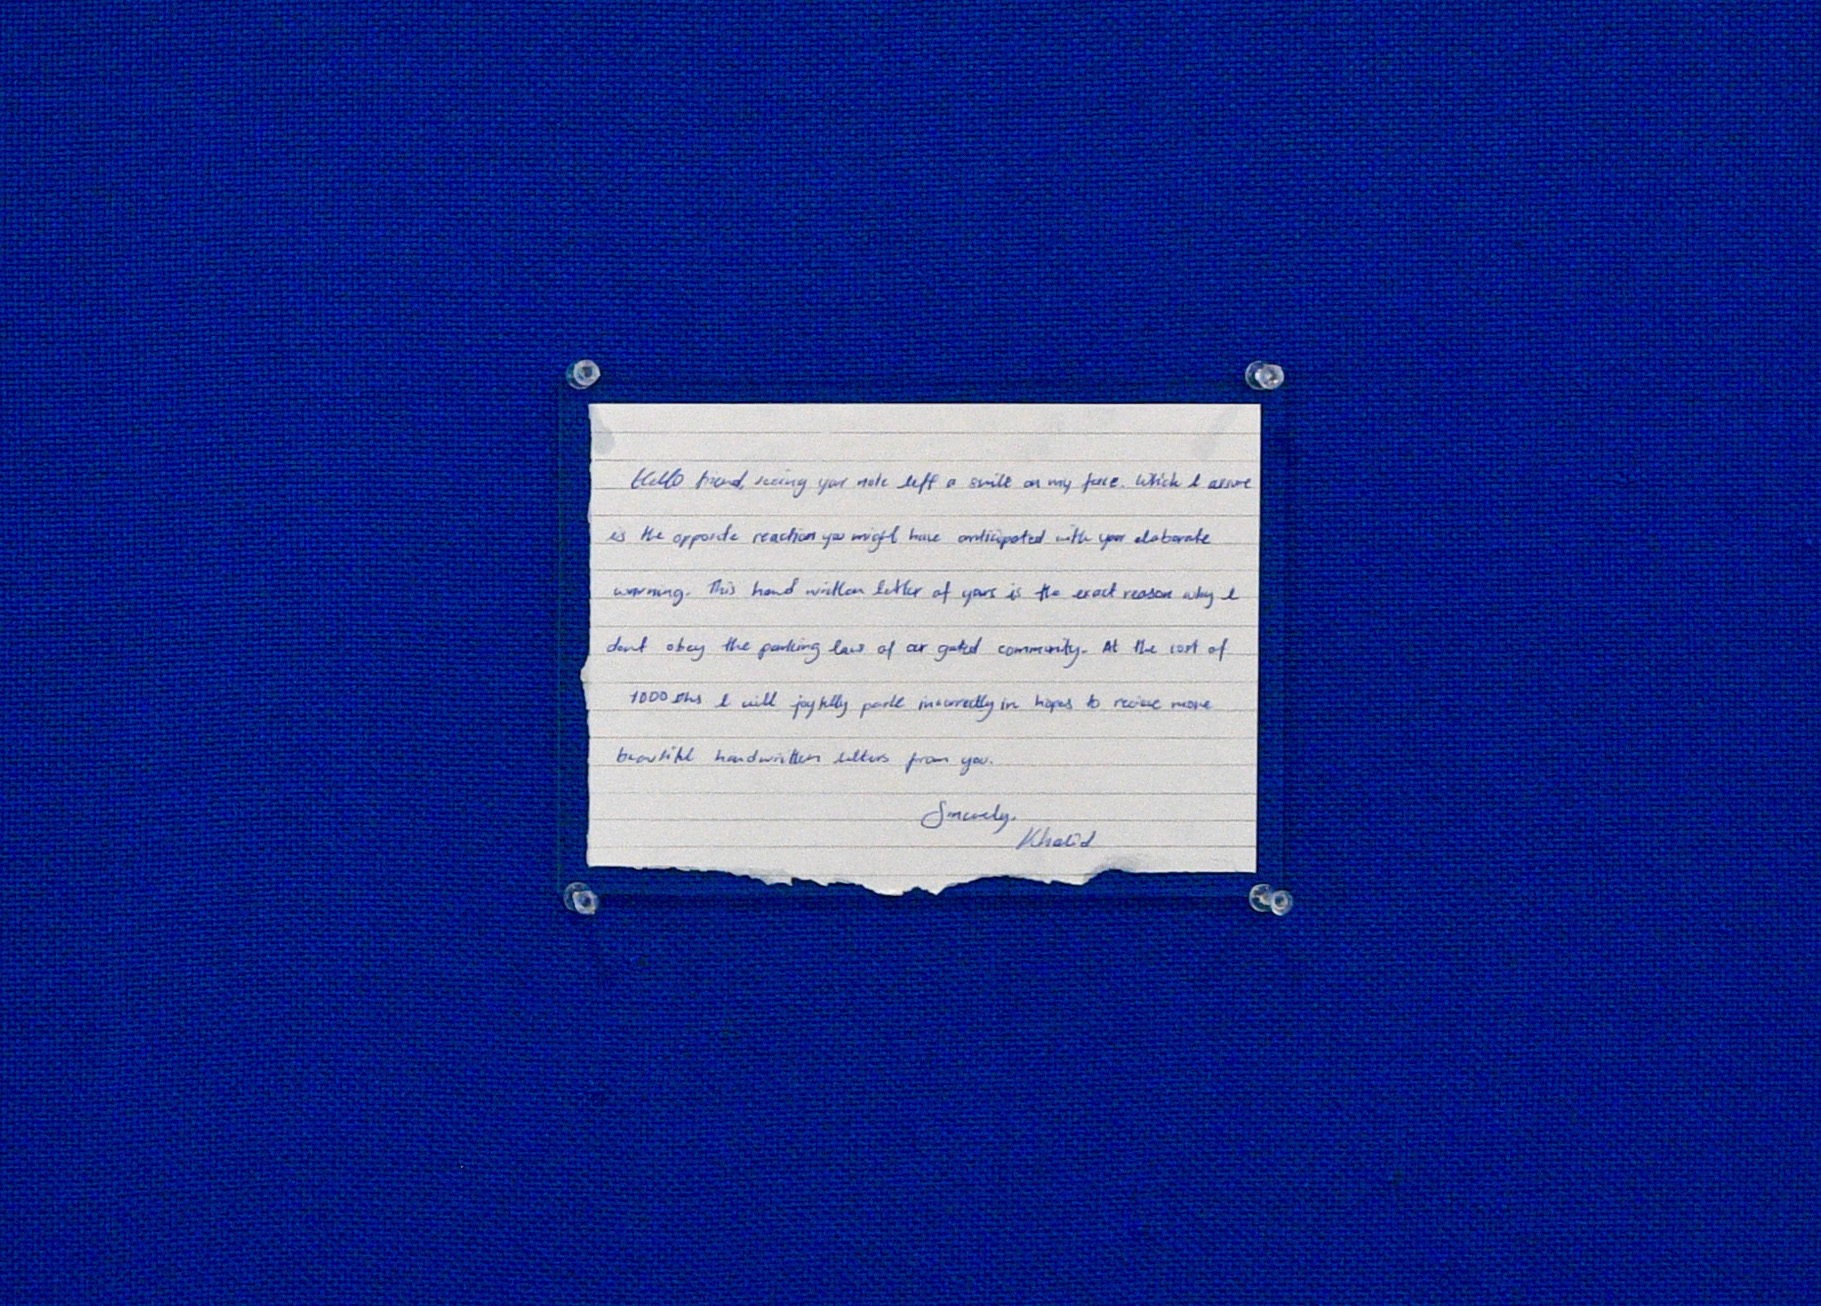 Hello friend, seeing your note left a smile on my face. Which I assure
is the opposite reaction you might have anticipated with your elaborate
warning. This hand written letter of yours is the exact reason why I
dont obey the parking laws of our gated community. At the cost of
1000 Dhs I will joyfully park incorrectly in hopes to recieve more
beautiful handwritten letters from you.
Sincerely,
Khalid